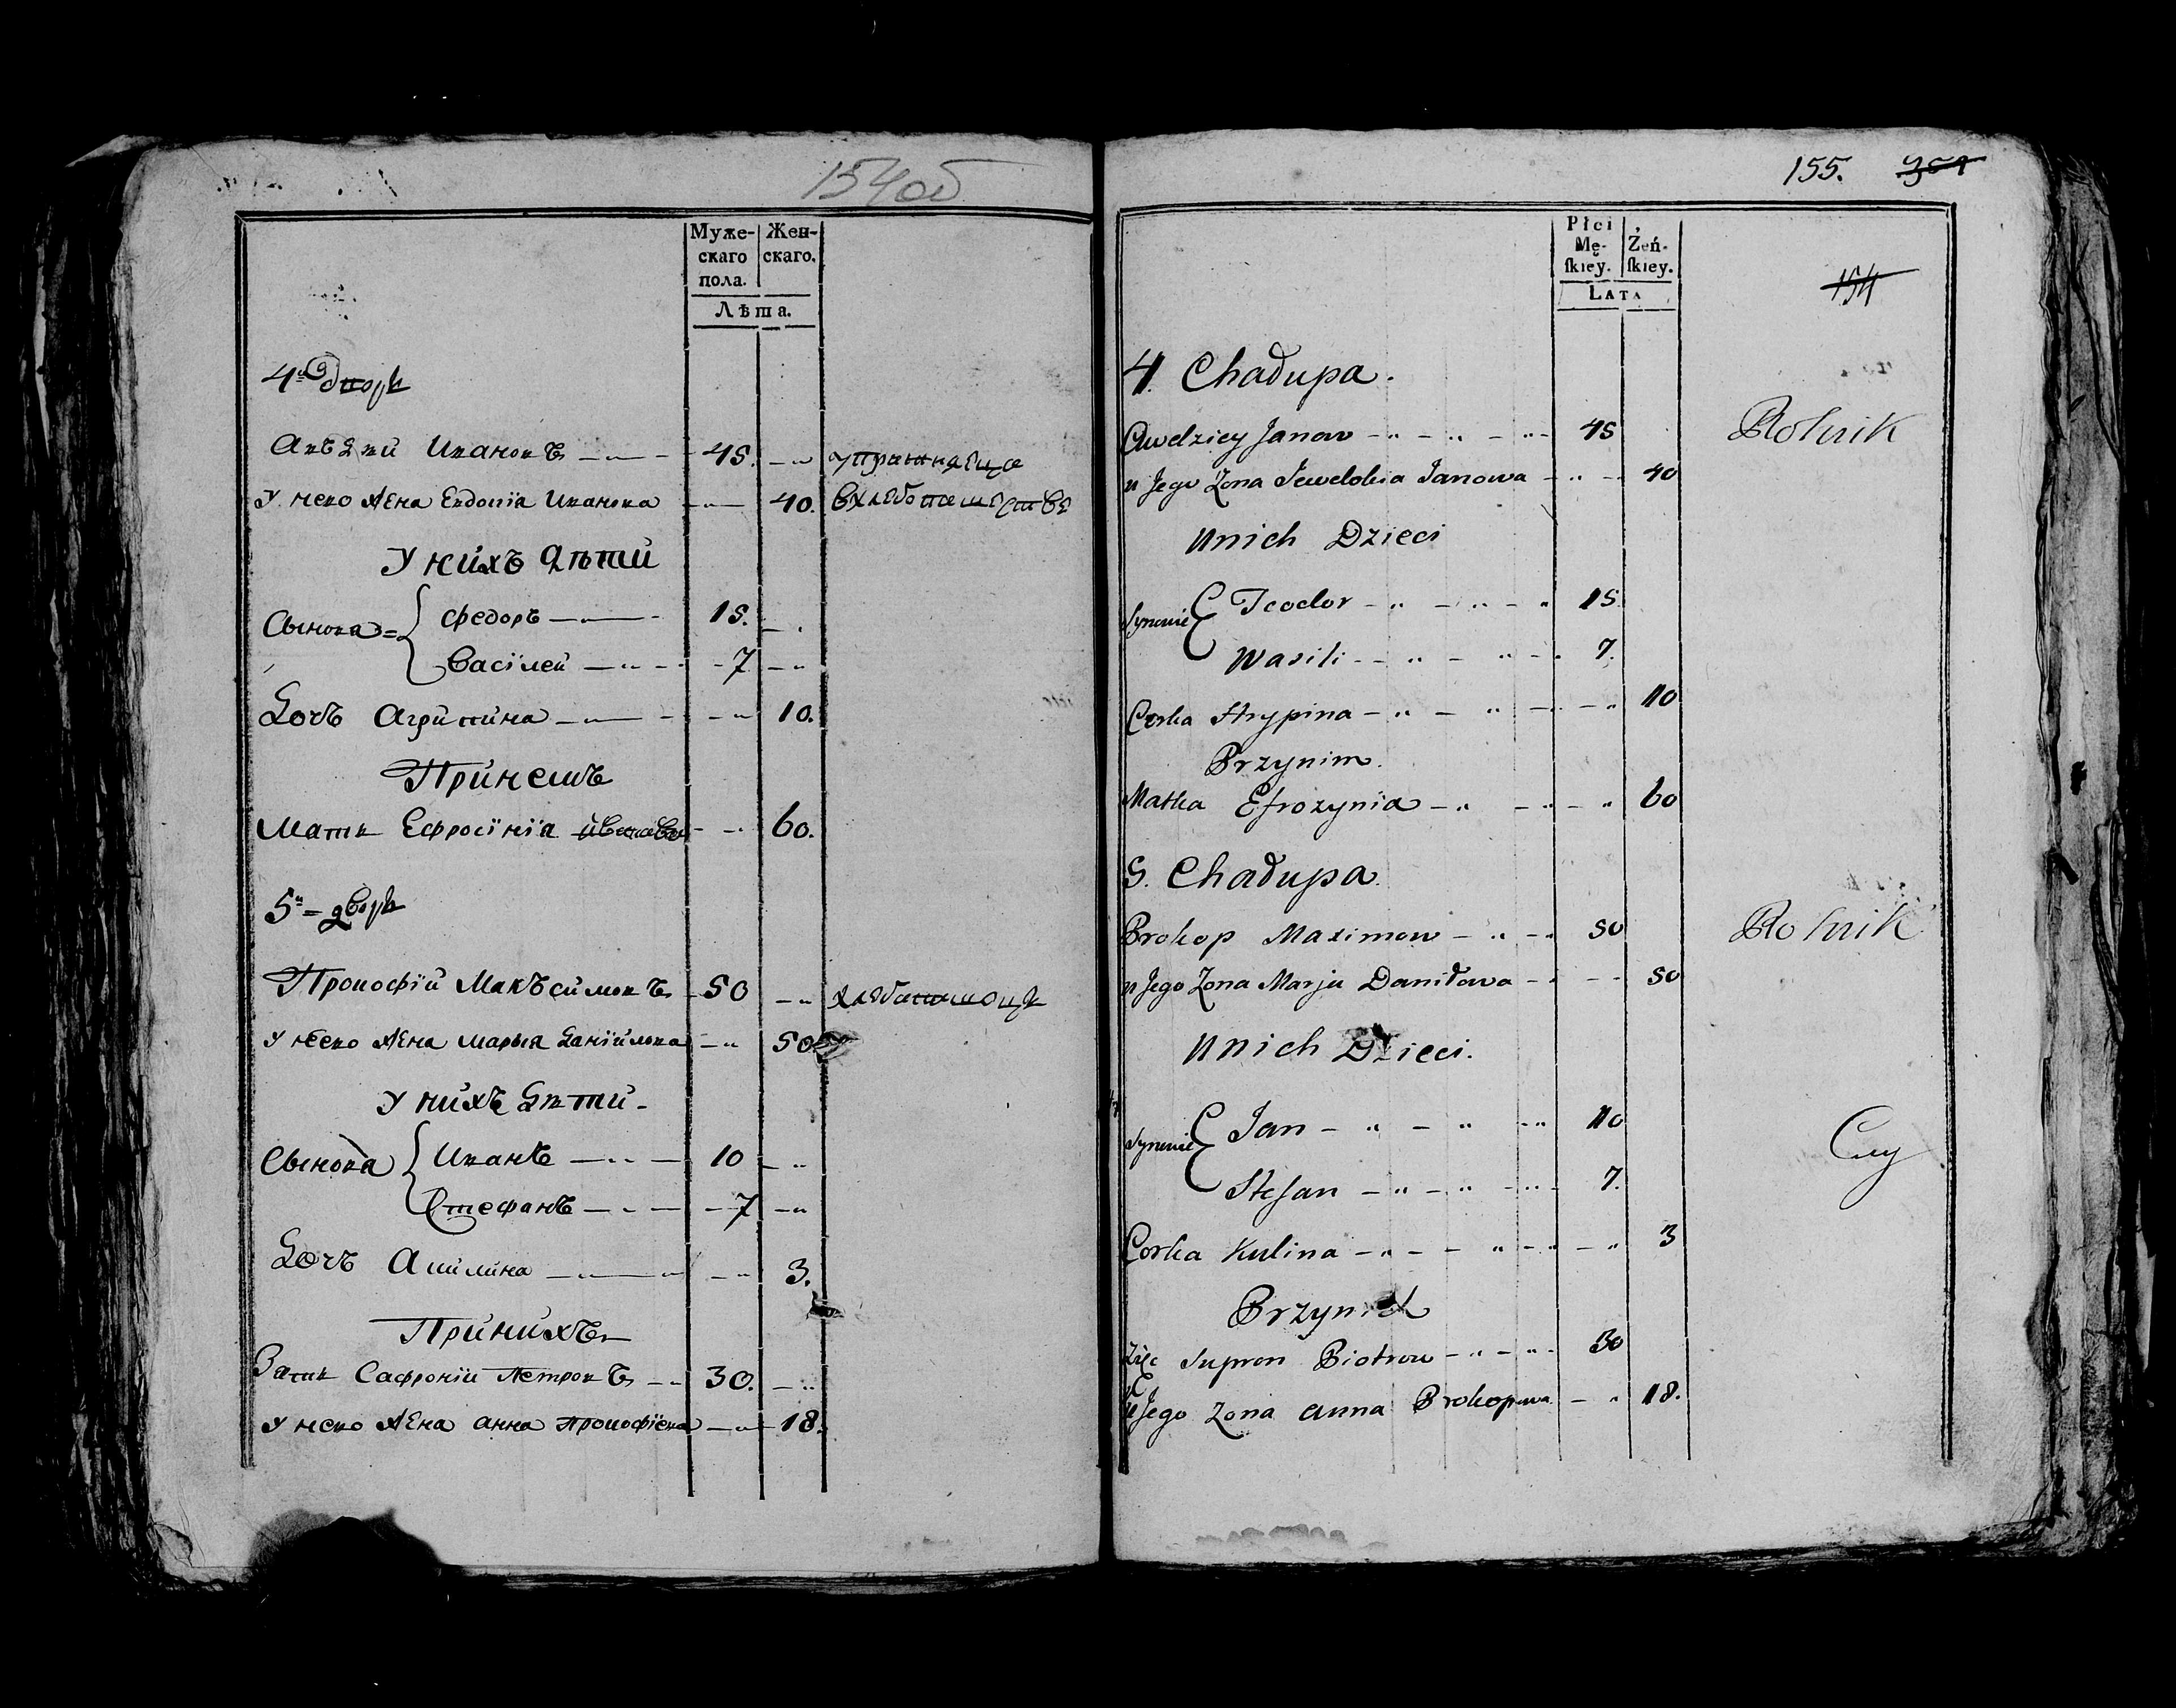 154об
Муже-
скаго
пола.
Жен-
скаго.
Лѣта.
4й дворъ
Авъдѣй Ивановъ 45. упражняеца
У нево жена Евдокія Иванова 40. в хлебопашестве
У нихъ дѣти
Сынова = Федоръ 15.
Васілей 7
Дочь Агрипина 10.
При немъ
Мать Ефросінія 60.
5й = дворъ
Прокофій Макъсимовъ 50 хлебопашецъ
У нево жена Марья Даниілова 50
У нихъ дѣти
Сынова Иванъ 10
Стефанъ 7
Дочь Акилина 3.
При нихъ
Зать Сафроній Петровъ 30.
У нево жена Анна Прокофіева 18.
155.
Płci
Mę-
skiey.
Żeń-
skiey.
LATA
154
4. Chałupa.
Awdziey Janow 45 Rolnik
u Jego Zona Jewdokia Janowa 40
u nich Dzieci
Synowie Teodor 15
Wasili 7.
Corka Hrypina 10
Przy nim
Matka Efrozynia 60
5. Chałupa.
Prokop Maximow 50 Rolnik
u Jego Zona Marja Daniłowa 50
u nich Dzieci.
Synowie Jan 10
Stefan 7.
Corka Kulina 3
Przy nich
Zięc Supron Piotrow 30
u Jego Zona Anna Prokopowa 18.